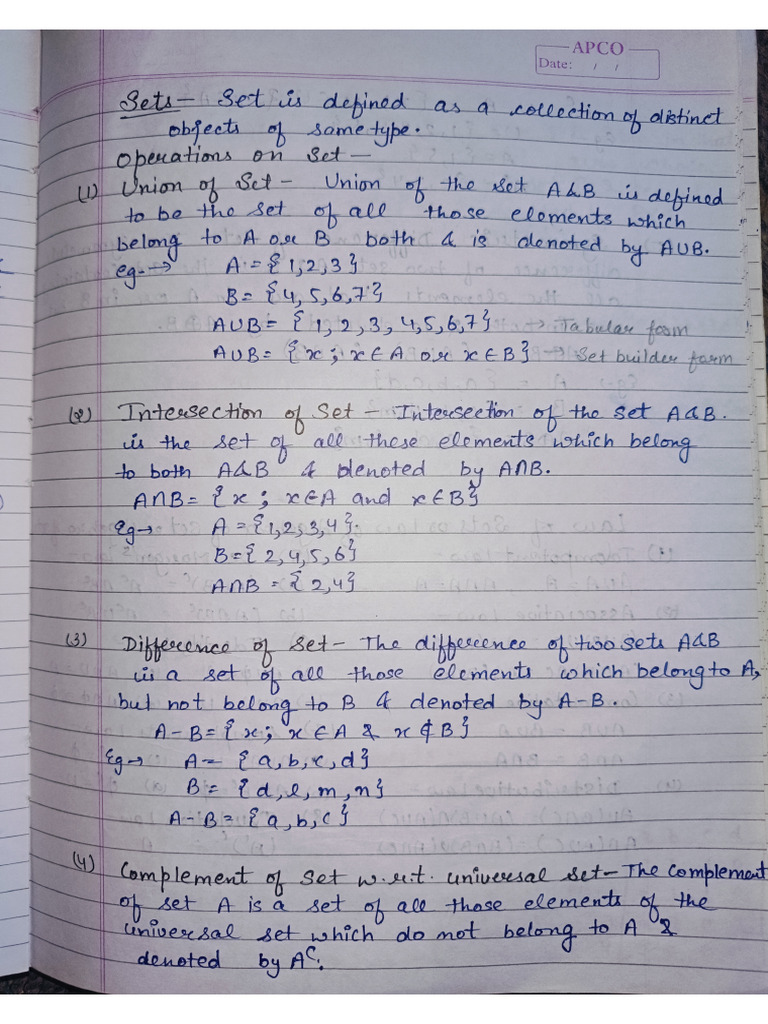 APCO
Date: / /
Sets - Set is defined as a collection of distinct
objects of same type.
Operations on Set -
(1) Union of Set - Union of the set A & B is defined
to be the set of all those elements which
belong to A or B both & is denoted by A∪B.
eg. → A = {1,2,3}
B = {4,5,6,7}
A∪B = {1,2,3,4,5,6,7} → Tabular form
A∪B = {x ; x∈A or x∈B} → Set builder form
(2) Intersection of Set - Intersection of the set A&B.
is the set of all these elements which belong
to both A&B & denoted by A∩B.
A∩B = {x ; x∈A and x∈B}
Eg → A = {1,2,3,4}
B = {2,4,5,6}
A∩B = {2,4}
(3) Difference of Set - The difference of two sets A&B
is a set of all those elements which belong to A,
but not belong to B & denoted by A-B.
A-B = {x ; x∈A & x∉B}
Eg → A = {a,b,c,d}
B = {d,l,m,n}
A-B = {a,b,c}
(4) Complement of Set w.r.t. universal set - The complement
of set A is a set of all those elements of the
universal set which do not belong to A &
denoted by Aᶜ.